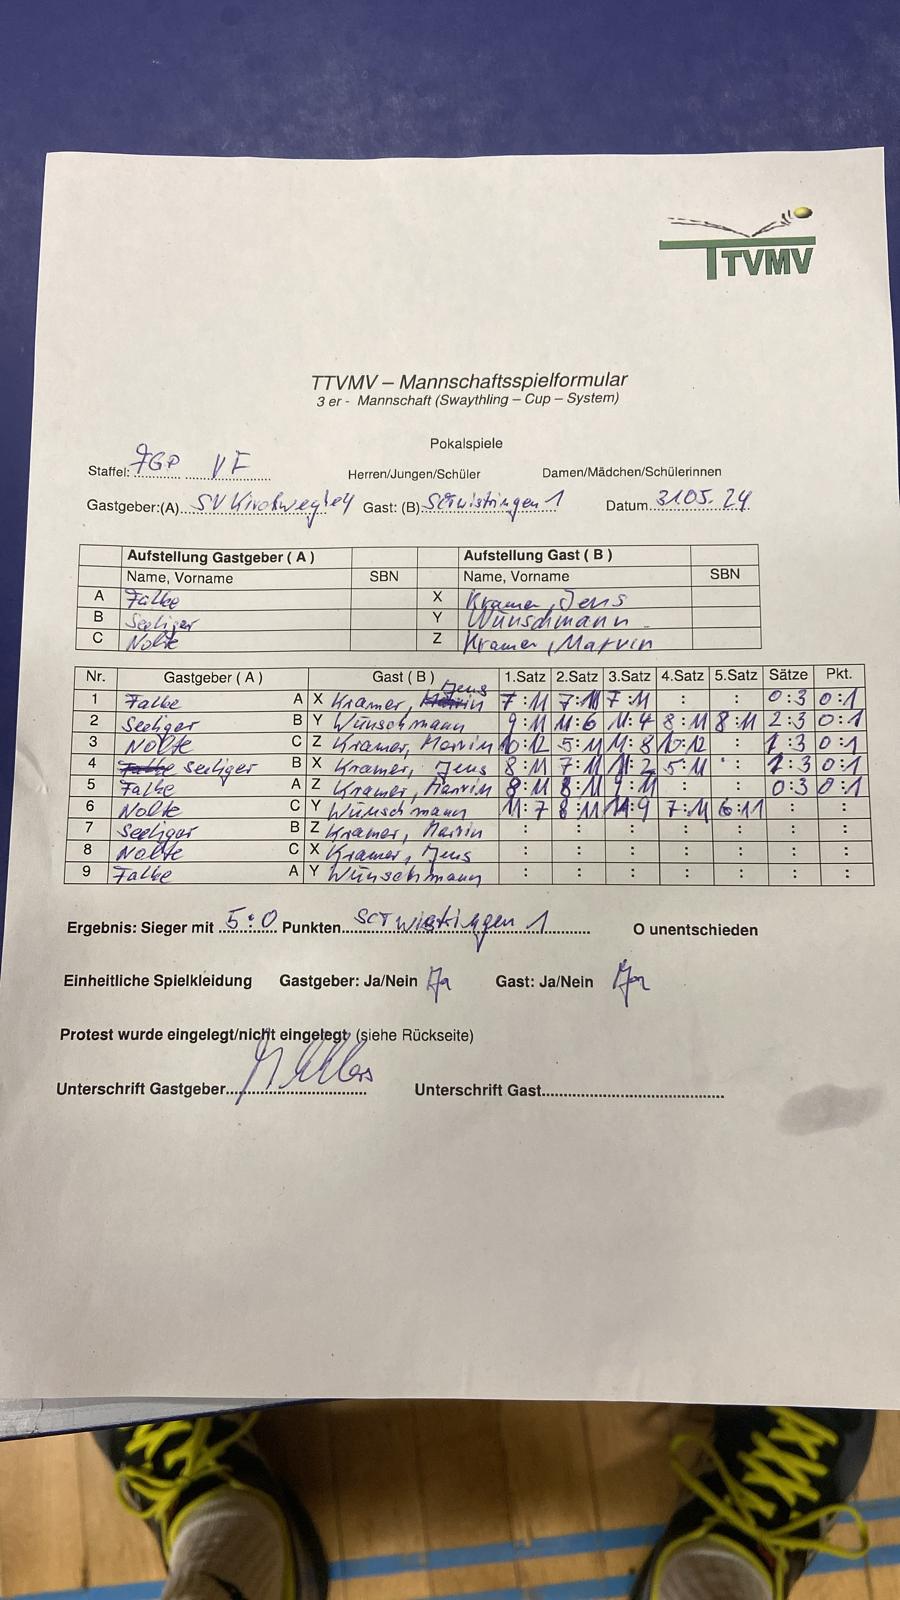 TTVMV
TTVMV – Mannschaftsspielformular
3 er - Mannschaft (Swaythling – Cup – System)
Pokalspiele
Staffel: VF Herren/Jungen/Schüler Damen/Mädchen/Schülerinnen
Gastgeber:(A) SV Kirchweyhe 4 Gast: (B) SC Twistringen 1 Datum 31.05.24
Aufstellung Gastgeber ( A ) Aufstellung Gast ( B )
Name, Vorname SBN Name, Vorname SBN
A Falke X Kramer, Jens
B Seeliger Y Wünschmann
C Nolte Z Kramer, Marvin
Nr. Gastgeber ( A ) Gast ( B ) 1.Satz 2.Satz 3.Satz 4.Satz 5.Satz Sätze Pkt.
1 Falke A X Kramer, Jens 7:11 7:11 7:11 : : 0:3 0:1
2 Seeliger B Y Wünschmann 9:11 11:6 11:4 8:11 8:11 2:3 0:1
3 Nolte C Z Kramer, Marvin 10:12 5:11 11:8 10:12 : 1:3 0:1
4 Seeliger B X Kramer, Jens 8:11 7:11 11:2 5:11 : 1:3 0:1
5 Falke A Z Kramer, Marvin 8:11 8:11 9:11 : : 0:3 0:1
6 Nolte C Y Wünschmann 11:7 8:11 11:9 7:11 6:11 : :
7 Seeliger B Z Kramer, Marvin : : : : : : :
8 Nolte C X Kramer, Jens : : : : : : :
9 Falke A Y Wünschmann : : : : : : :
Ergebnis: Sieger mit 5:0 Punkten SC Twistringen 1 O unentschieden
Einheitliche Spielkleidung Gastgeber: Ja/Nein Ja Gast: Ja/Nein Ja
Protest wurde eingelegt/nicht eingelegt (siehe Rückseite)
Unterschrift Gastgeber Unterschrift Gast